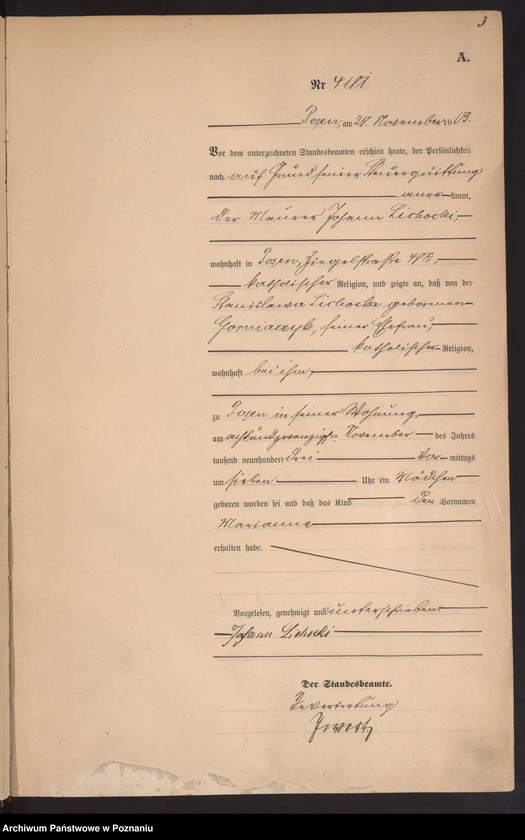 3
A.
Nr 4181
Posen, am 28. November 1903.
Vor dem unterzeichneten Standesbeamten erschien heute, der Persönlichkeit
nach auf Grund seiner Steuerquittung
anerkannt,
der Maurer Johann Lichocki,
wohnhaft in Posen, Ziegelstraße
katholischer Religion, und zeigte an, daß von der
Stanislawa Lichocka geborenen
Gorniaczyk, seiner Ehefrau,
katholischer Religion,
wohnhaft bei ihm,
zu Posen in seiner Wohnung,
am achtundzwanzigsten November des Jahres
tausend neunhundert drei Vormittags
um sieben Uhr ein Mädchen
geboren worden sei und daß das Kind den Vornamen
Marianne
erhalten habe.
Vorgelesen, genehmigt und unterschrieben.
Johann Lichocki
Der Standesbeamte.
In Vertretung
Archiwum Państwowe w Poznaniu